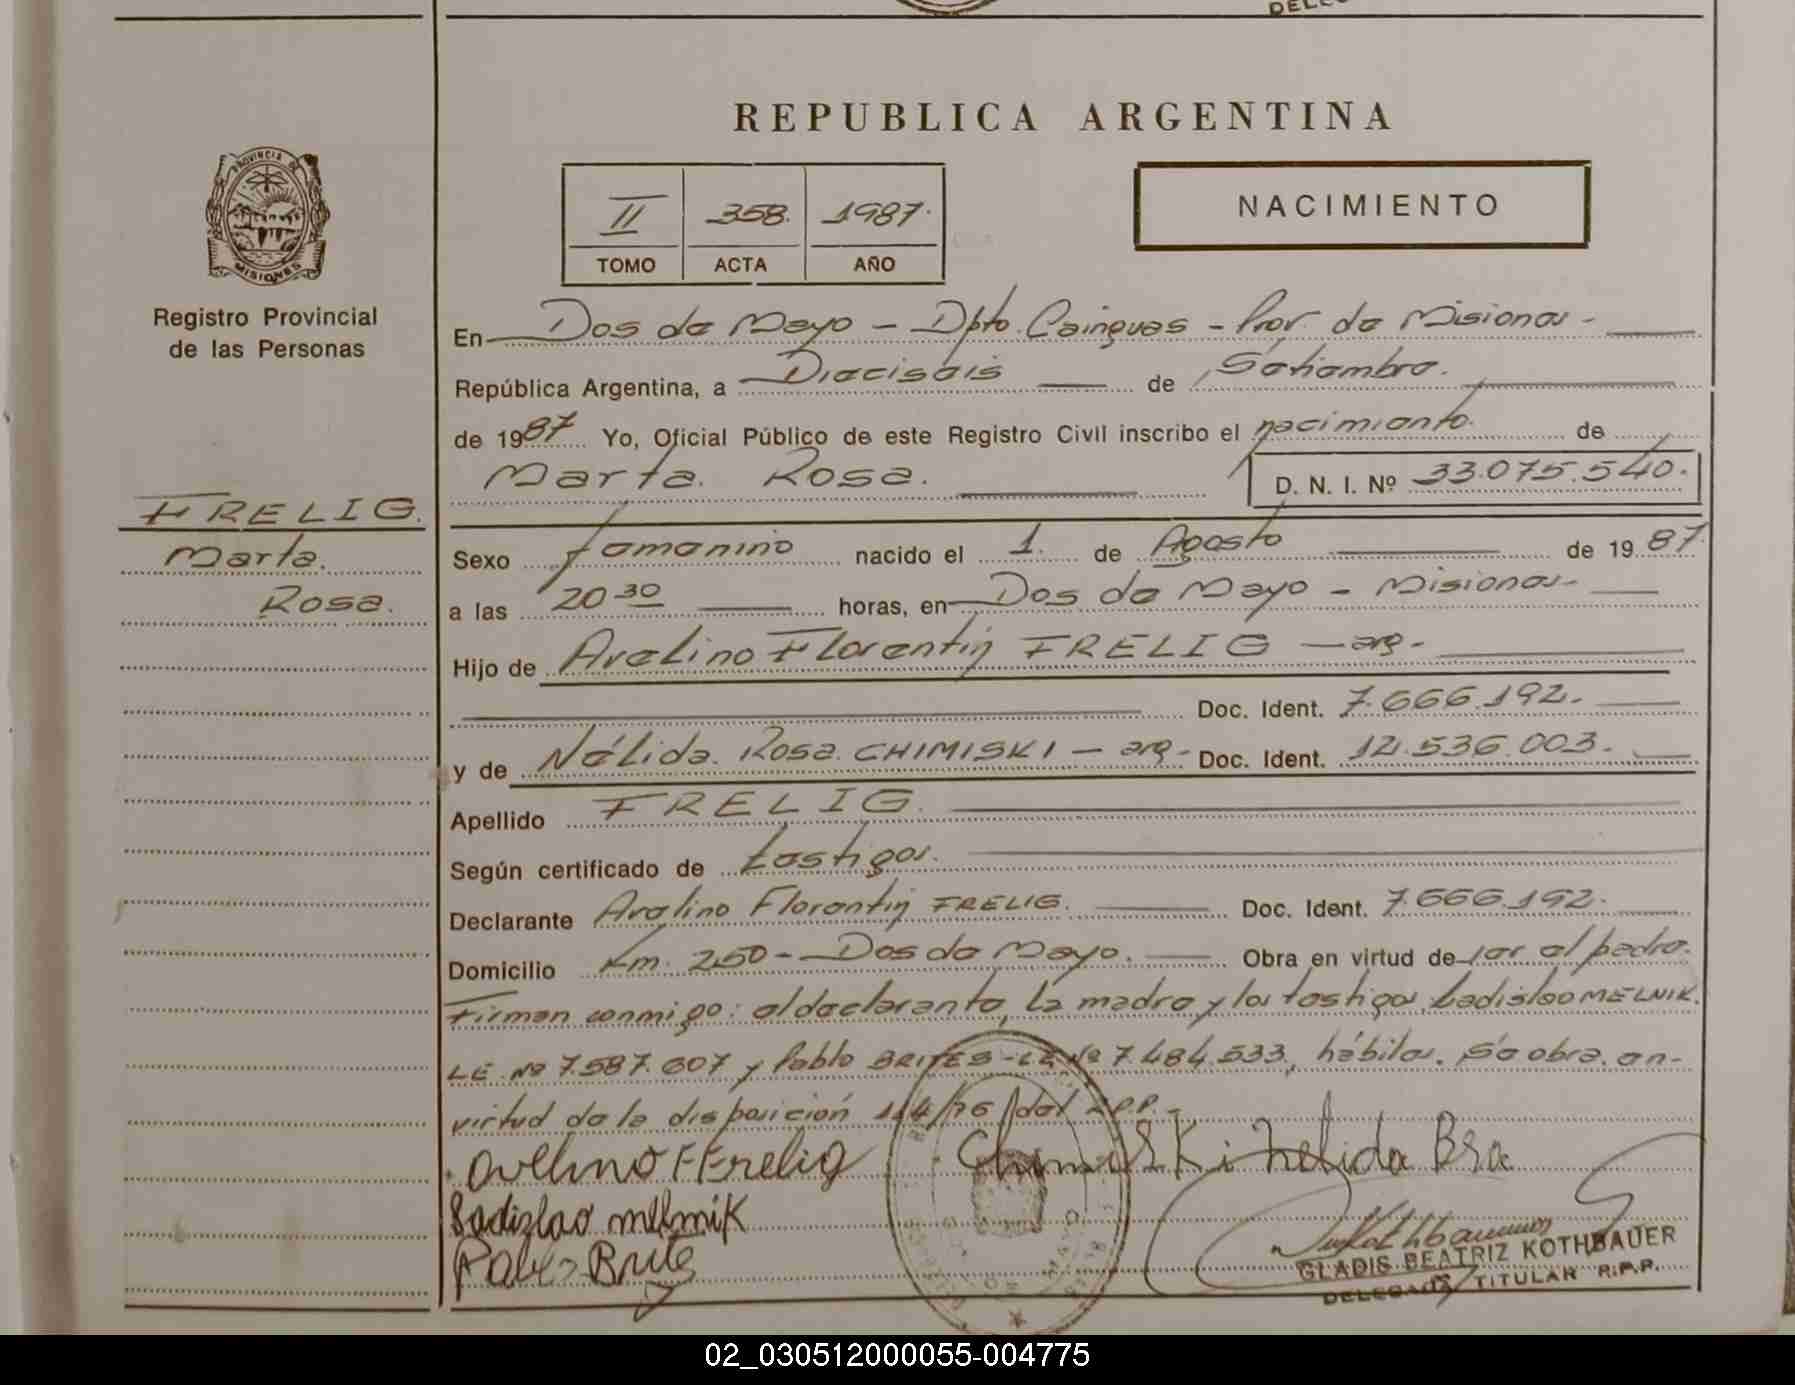 REPUBLICA ARGENTINA
PROVINCIA DE
MISIONES
Registro Provincial
de las Personas
II 358. 1987.
TOMO ACTA AÑO
NACIMIENTO
En Dos de Mayo - Dpto. Cainguas - Prov. de Misiones -
República Argentina, a Dieciséis de Setiembre.
de 1987 Yo, Oficial Público de este Registro Civil inscribo el nacimiento. de
Marta. Rosa. D. N. I. Nº 33.075.540.
FRELIG.
Marta.
Rosa.
Sexo femenino nacido el 1. de Agosto de 1987.
a las 20 30 horas, en Dos de Mayo - Misiones -
Hijo de Avelino Florentin FRELIG - arg -
Doc. Ident. 7.666.192.
y de Nélida. Rosa. CHIMISKI - arg - Doc. Ident. 12.536.003.
Apellido FRELIG.
Según certificado de testigos.
Declarante Avelino Florentin FRELIG. Doc. Ident. 7.666.192.
Domicilio Km. 250 - Dos de Mayo. Obra en virtud de ser el padre.
Firman conmigo: el declarante, la madre y los testigos, Ladislao MELNIK.
LE. Nº 7.587.607 y Pablo BRITES - LE Nº 7.484.533, hábiles. Se obra. en-
virtud de la disposición 114/76 del R.P.P. -
Avelino F Frelig Chimiski Nelida Rsa
Ladizlao melmiK
Pablo Brite
GLADIS BEATRIZ KOTHBAUER
DELEGADA TITULAR R.P.P.
02_030512000055-004775